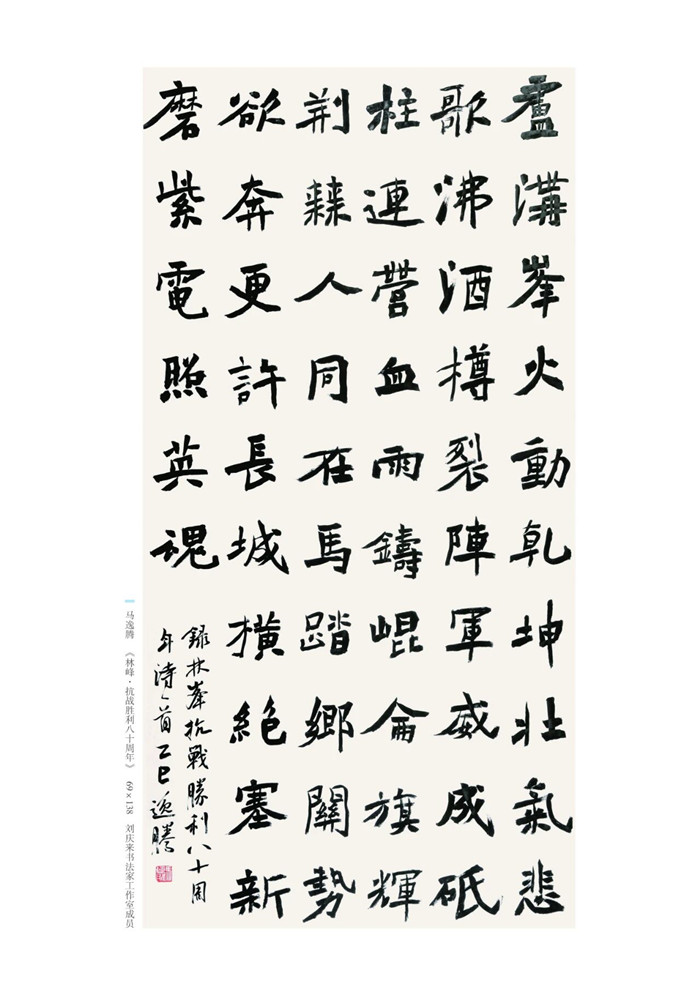 盧溝峯火動乾坤壯氣悲
歌沸酒樽裂陣軍威成砥
柱連營血雨鑄崐崙旗輝
荆棘人同在馬踏鄉關勢
欲奔更許長城橫絕塞新
磨紫電照英魂
録林峯抗戰勝利八十周
年詩一首乙巳逸騰
马逸腾 《林峰·抗战胜利八十周年》 69×138 刘庆来书法家工作室成员